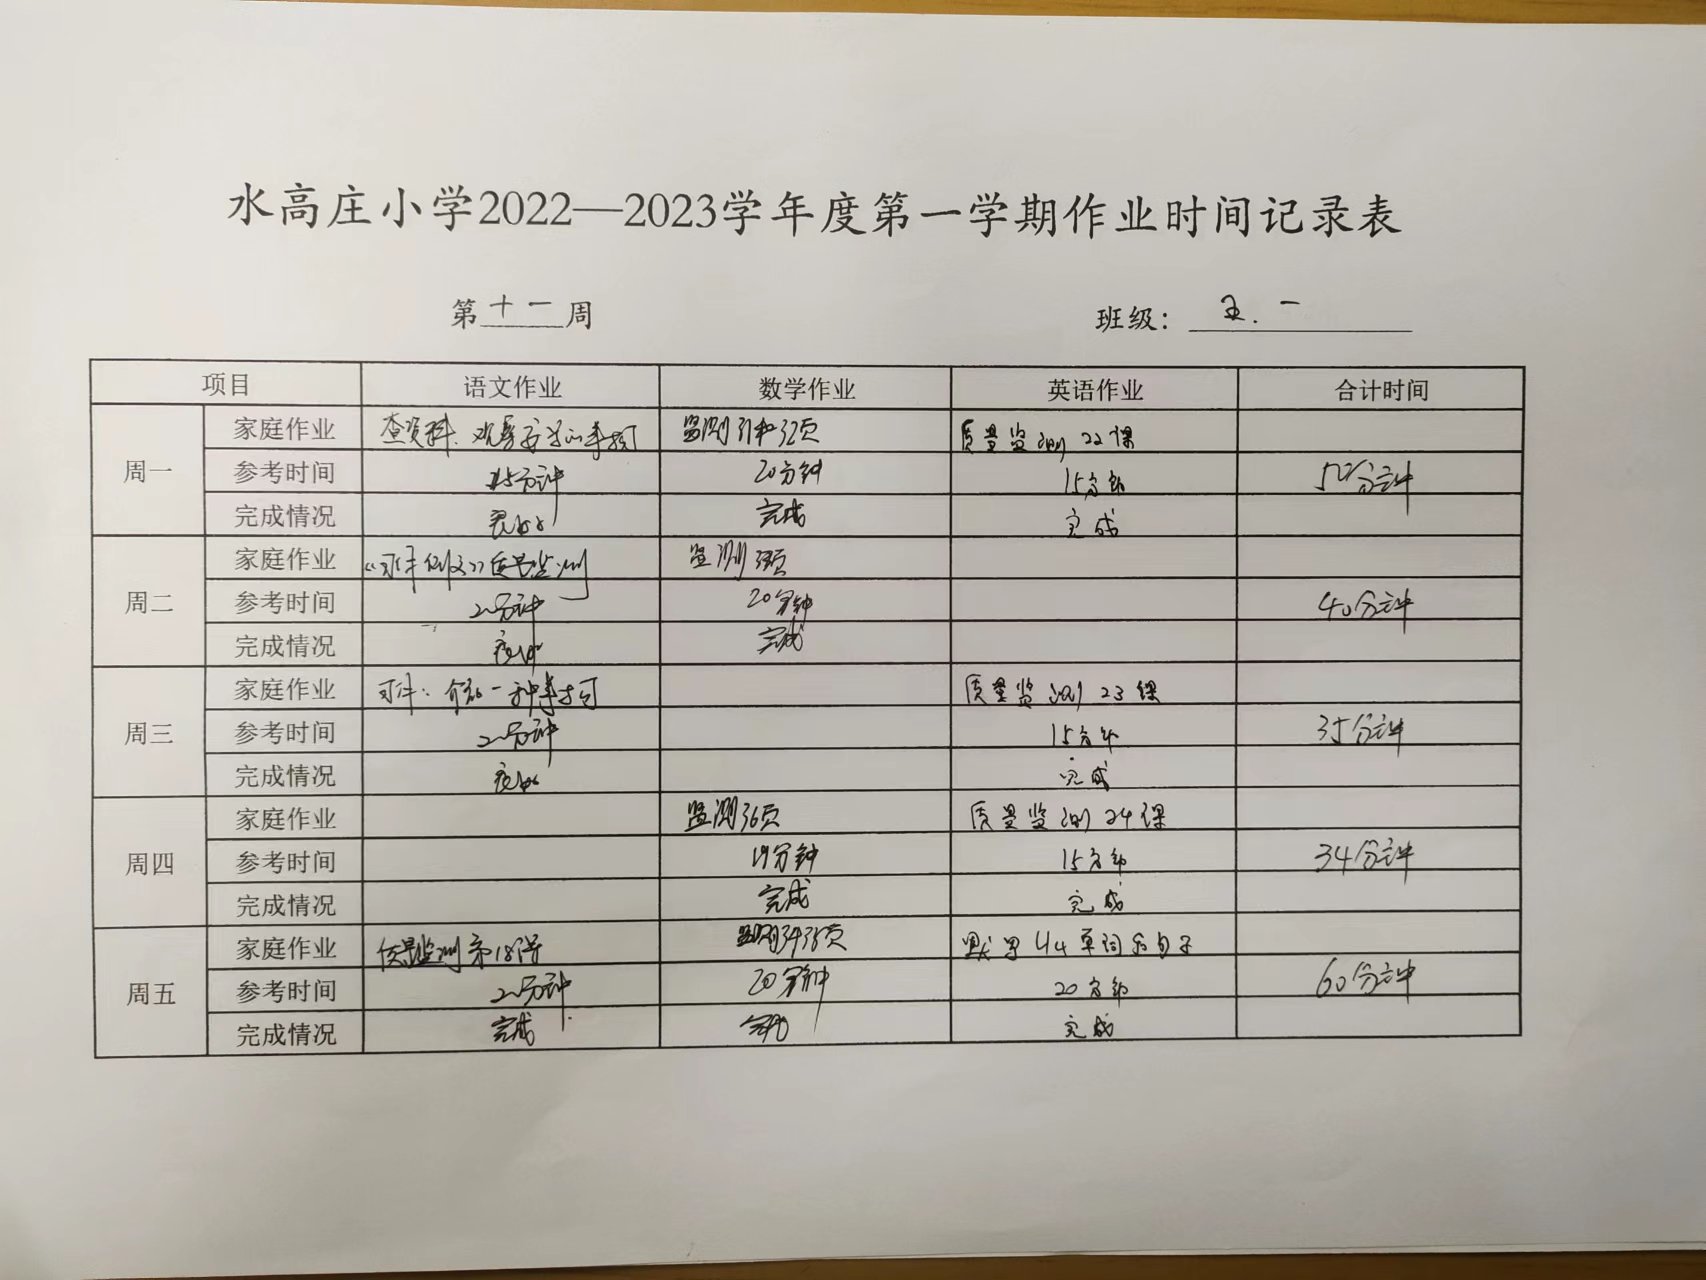 水高庄小学2022—2023学年度第一学期作业时间记录表
第十一周 班级：五.一
项目 语文作业 数学作业 英语作业 合计时间
周一 家庭作业 查资料、观察 监测31和32页 质量监测22课
参考时间 15分钟 20分钟 15分钟 50分钟
完成情况 完成 完成
周二 家庭作业 《习作例文》质量监测 监测33页
参考时间 20分钟 20分钟 40分钟
完成情况 完成
周三 家庭作业 习作：介绍一种事物 质量监测23课
参考时间 20分钟 15分钟 35分钟
完成情况 完成
周四 家庭作业 监测36页 质量监测24课
参考时间 19分钟 15分钟 34分钟
完成情况 完成 完成
周五 家庭作业 质量监测第18课 监测 页 默写U4单词和句子
参考时间 20分钟 20分钟 20分钟 60分钟
完成情况 完成 完成 完成